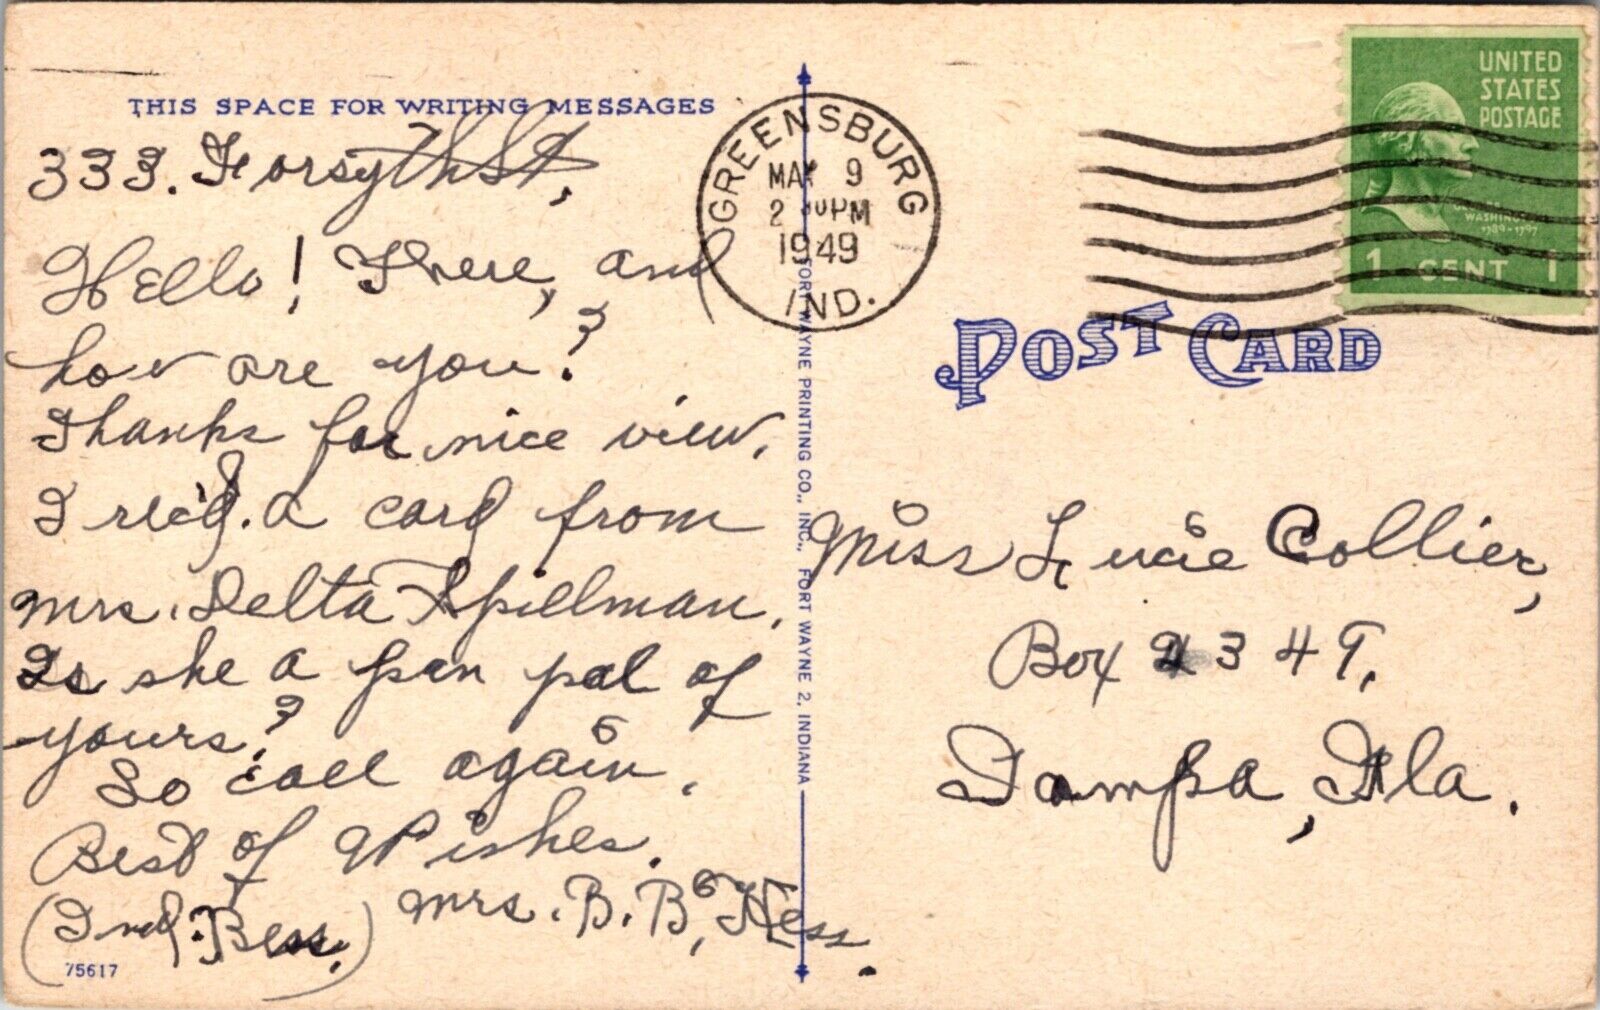 THIS SPACE FOR WRITING MESSAGES
333. Forsyth St,
Hello! There, and
how are you?
Thanks for nice view.
I rec'd. a card from
Mrs. Delta Spillman.
Is she a pen pal of
yours?
So call again.
Best of Wishes.
Mrs. B. B. Hess.
(Ind. Bess.)
75617
FORT WAYNE PRINTING CO., INC., FORT WAYNE 2, INDIANA
GREENSBURG
MAY 9
2 PM
1949
IND.
UNITED
STATES
POSTAGE
1789-1797
1 CENT 1
POST CARD
Miss Lucie Collier,
Box 2349,
Tampa, Fla.